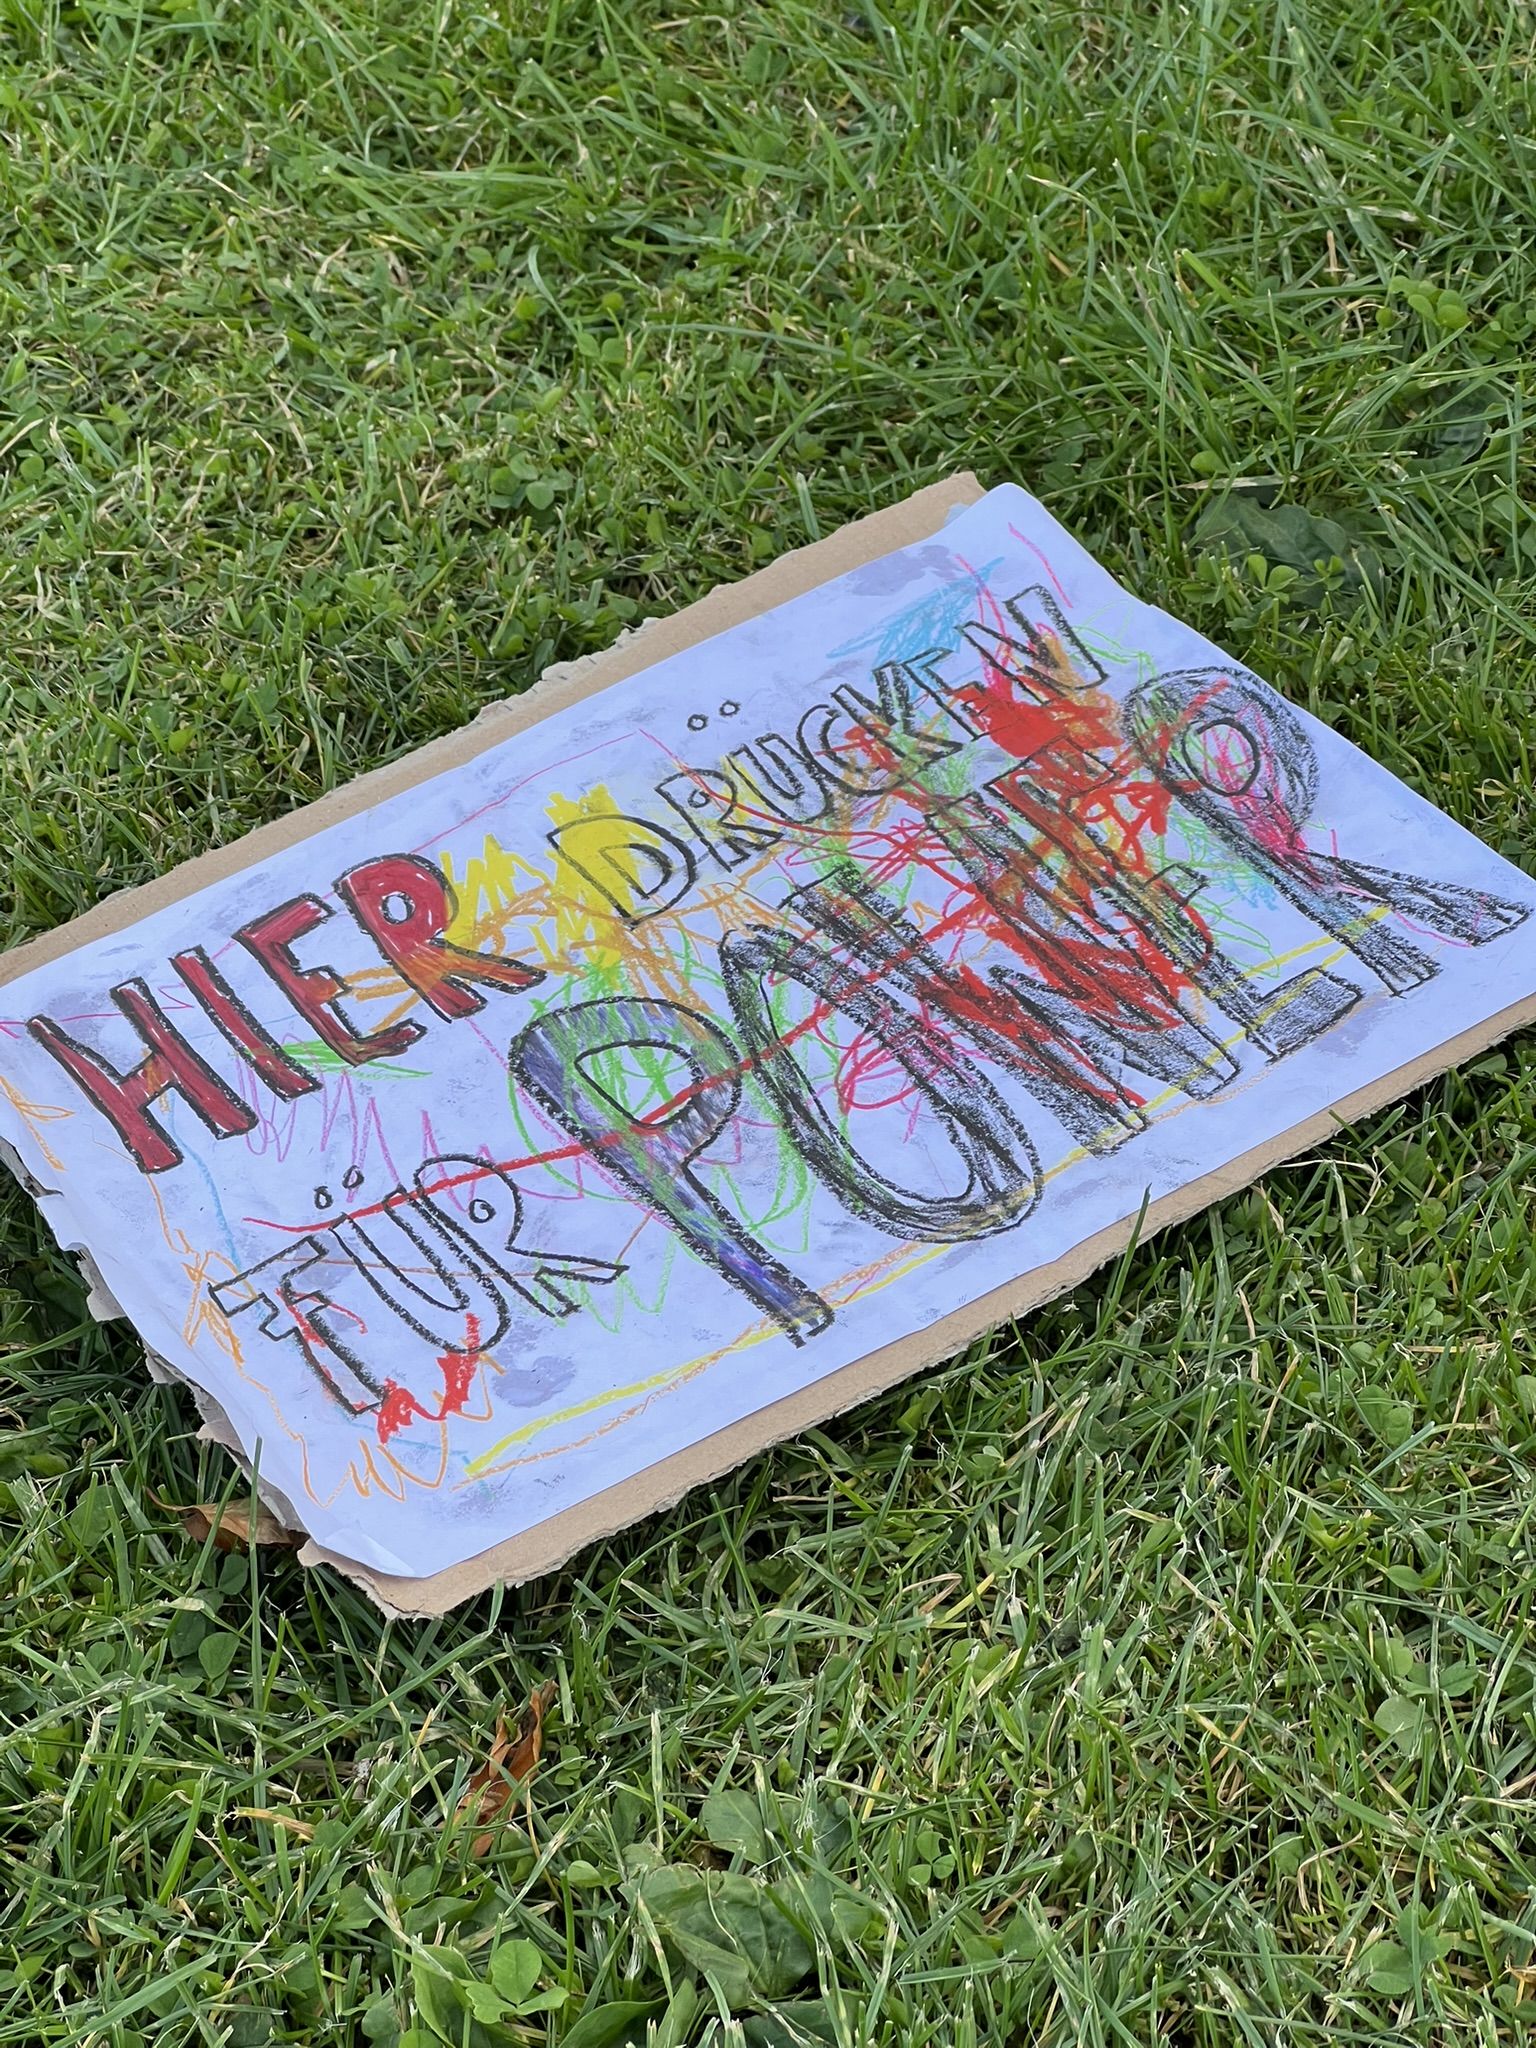 HIER DRÜCKEN
FÜR POWER